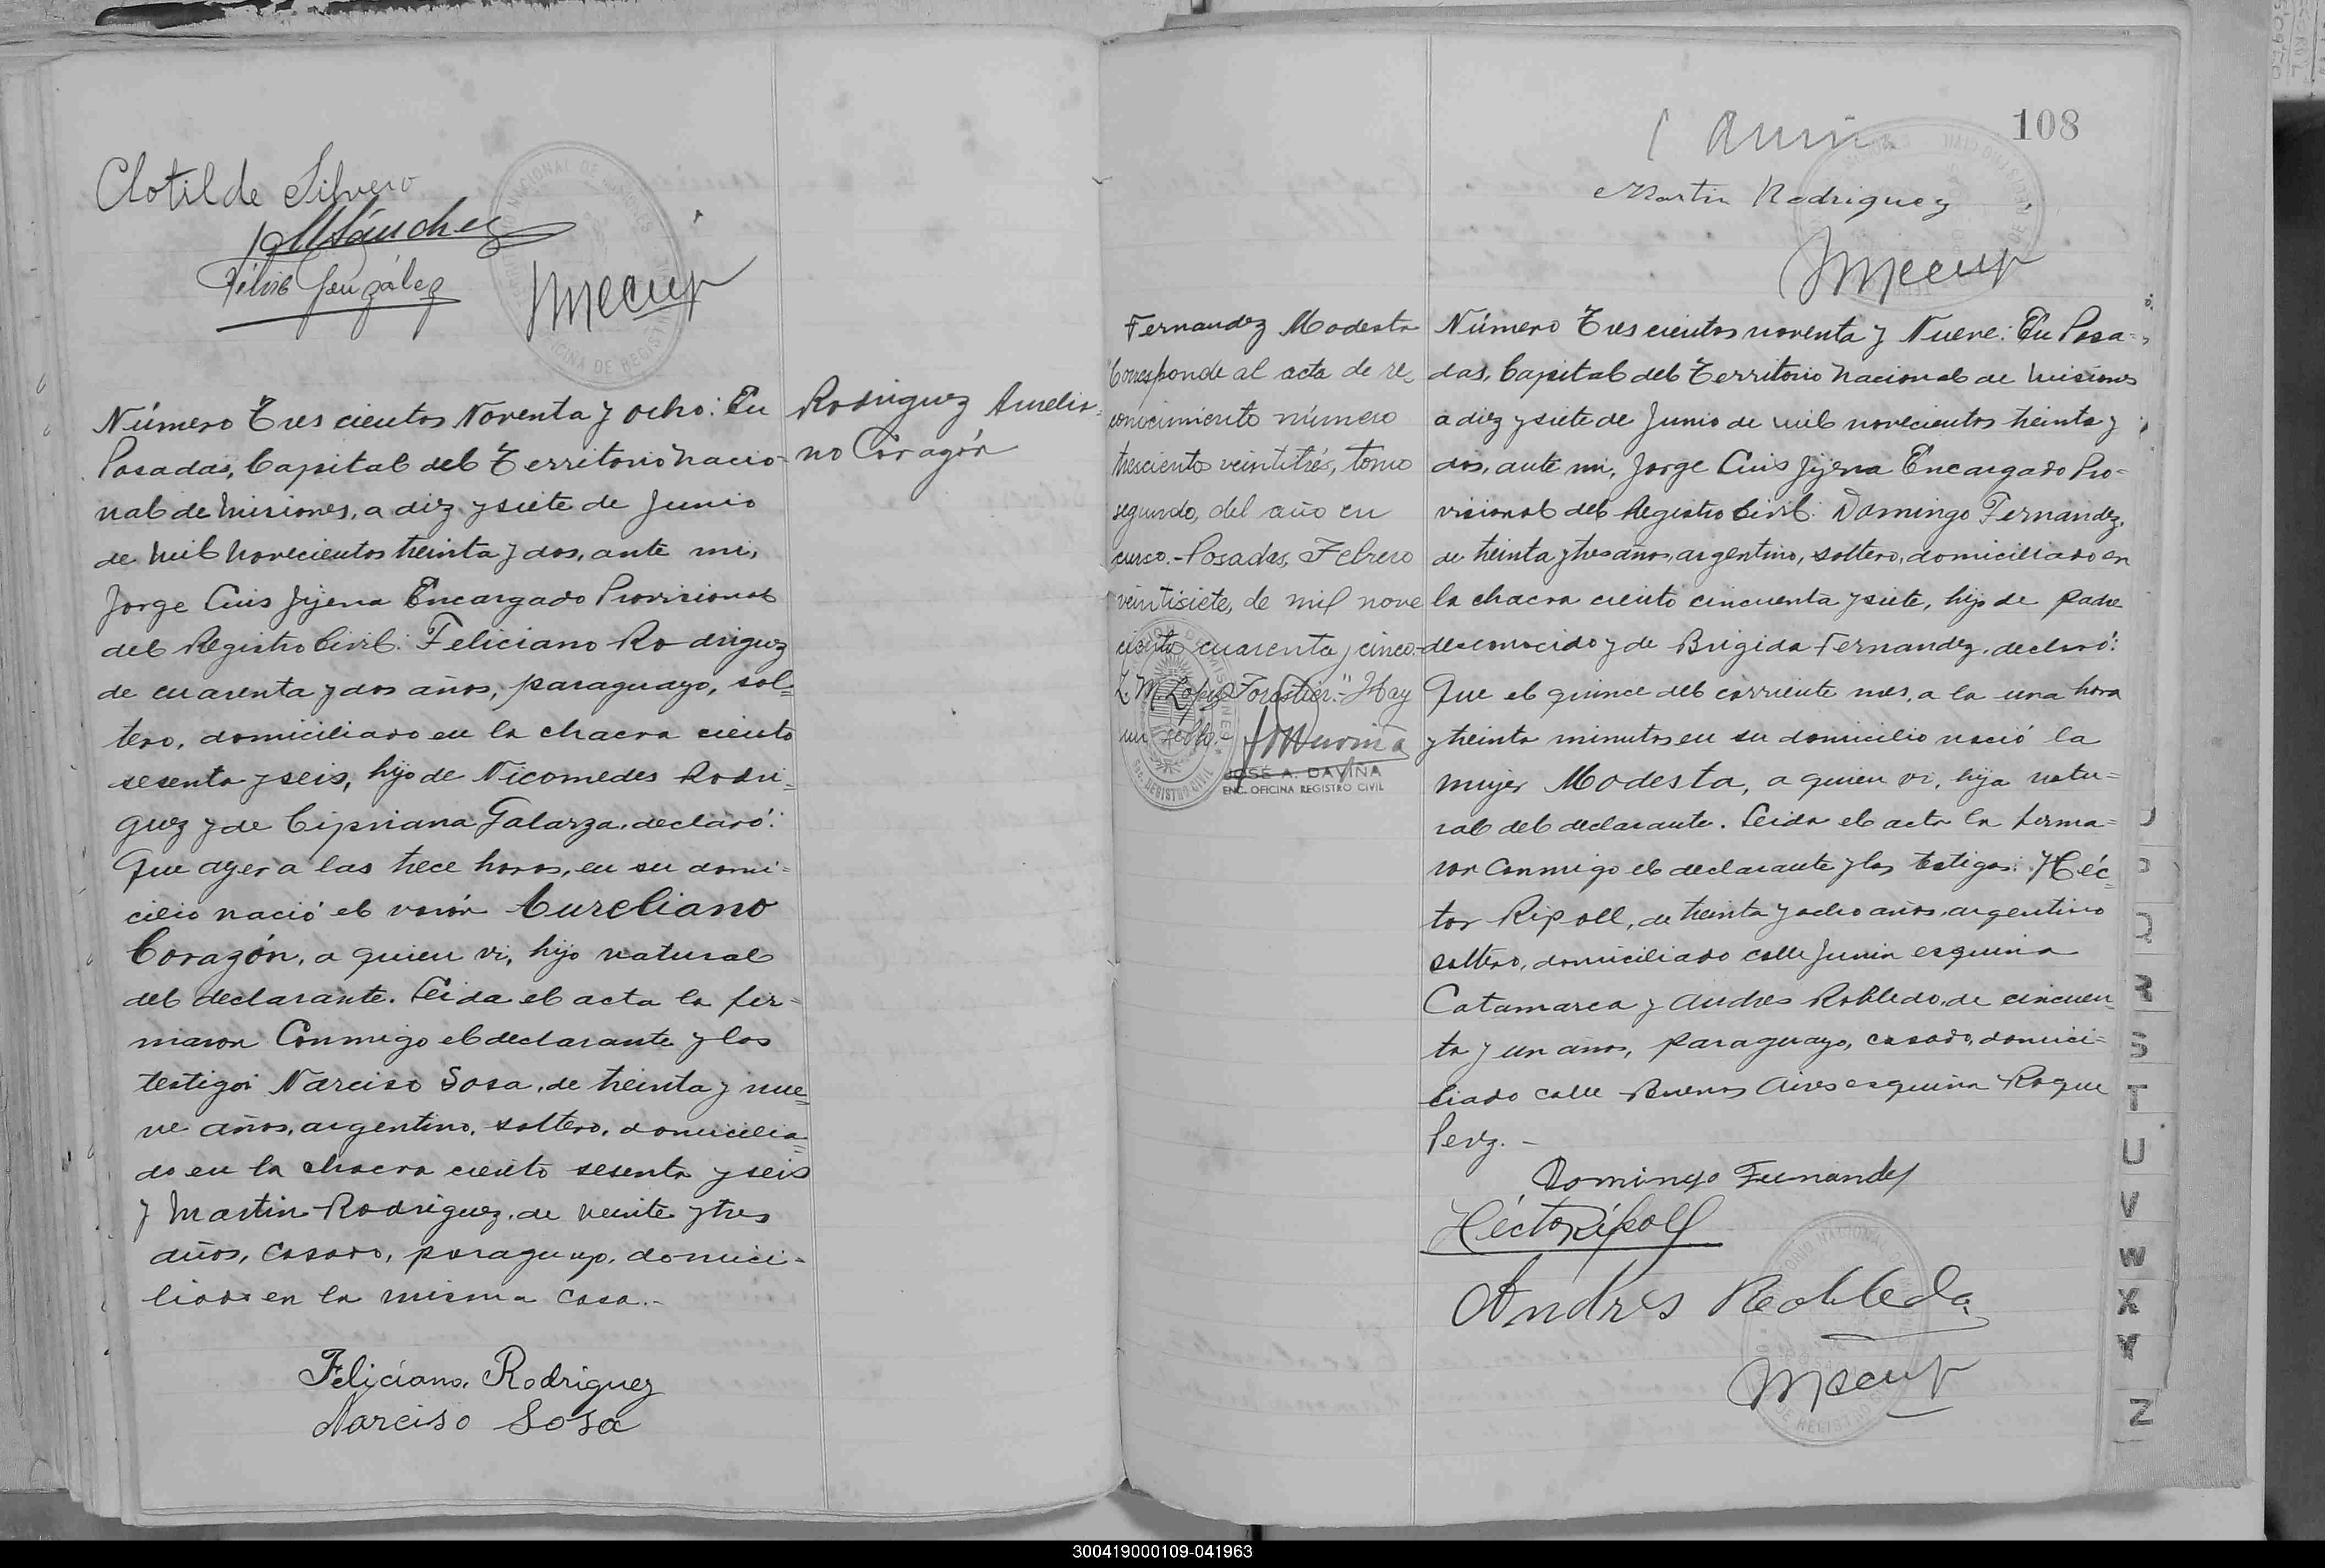 Clotilde Silvero
Sánchez
González
Número Trescientos Noventa y ocho: En
Posadas, Capital del Territorio Nacio-
nal de Misiones, a diez y siete de Junio
de mil novecientos treinta y dos, ante mi,
Jorge Luis Jijena Encargado Provisional
del Registro Civil: Feliciano Rodriguez
de cuarenta y dos años, paraguayo, sol-
tero, domiciliado en la chacra ciento
sesenta y seis, hijo de Nicomedes Rodri-
guez y de Cipriana Galarza, declaró:
Que ayer a las trece horas, en su domi-
cilio nació el varón Aureliano
Corazón, a quien vi, hijo natural
del declarante. Leida el acta la fir-
maron Conmigo el declarante y los
testigos Narciso Sosa, de treinta y nue-
ve años, argentino, soltero, domicilia-
do en la chacra ciento sesenta y seis
y Martin Rodriguez, de veinte y tres
años, casado, paraguayo, domici-
liado en la misma casa.-
Feliciano Rodriguez
Narciso Sosa
Rodriguez Aurelia-
no Corazón
108
Martin Rodriguez
Fernandez Modesta
"Corresponde al acta de re-
conocimiento número
trescientos veintitrés, tomo
segundo, del año en
curso.- Posadas, Febrero
veintisiete, de mil nove
cientos cuarenta y cinco.-
L. M. Lopez Forastier."- Hay
un sello.
JOSÉ A. DAVIÑA
ENC. OFICINA REGISTRO CIVIL
Número Trescientos noventa y Nueve: En Posa-
das, Capital del Territorio Nacional de Misiones
a diez y siete de Junio de mil novecientos treinta y
dos, ante mi, Jorge Luis Jijena Encargado Pro-
visional del Registro Civil: Domingo Fernandez,
de treinta y tres años, argentino, soltero, domiciliado en
la chacra ciento cincuenta y siete, hijo de padre
desconocido y de Brigida Fernandez, declaró:
Que el quince del corriente mes, a la una hora
y treinta minutos en su domicilio nació la
mujer Modesta, a quien vi, hija natu-
ral del declarante. Leida el acta la firma-
ron Conmigo el declarante y los testigos: Héc-
tor Ripoll, de treinta y ocho años, argentino
soltero, domiciliado calle Junin esquina
Catamarca y Andres Robledo, de cincuen-
ta y un años, paraguayo, casado, domici-
liado calle Buenos Aires esquina Roque
Perez.-
Domingo Fernandez
Héctor Ripoll
Andrés Robledo
Q
R
S
T
U
V
W
X
Y
Z
300419000109-041963